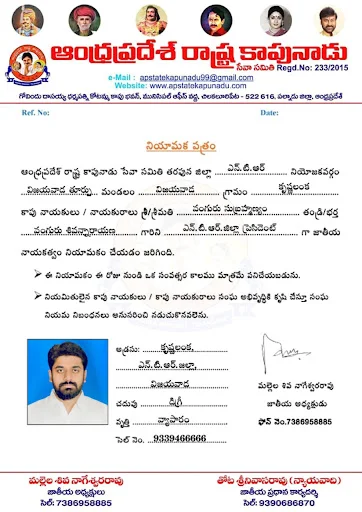 ఆంధ్రప్రదేశ్ రాష్ట్ర కాపునాడు
సేవా సమితి Regd.No: 233/2015
e-Mail : apstatekapunadu99@gmail.com
Website: www.apstatekapunadu.com
గోవిందు దాసయ్య ధర్మపత్ని కోటమ్మ కాపు భవన్, మున్సిపల్ ఆఫీస్ వద్ద, చిలకలూరిపేట - 522 616. పల్నాడు జిల్లా, ఆంధ్రప్రదేశ్
Ref. No: Date:
నియామక పత్రం
ఆంధ్రప్రదేశ్ రాష్ట్ర కాపునాడు సేవా సమితి తరపున జిల్లా ఎన్.టి.ఆర్ నియోజకవర్గం
విజయవాడ తూర్పు, మండలం విజయవాడ గ్రామం కృష్ణలంక
కాపు నాయకులు / నాయకురాలు శ్రీ/శ్రీమతి వంగురు సుబ్రహ్మణ్యం తండ్రి/భర్త
వంగురు శివన్నారాయణ గారిని ఎన్.టి.ఆర్.జిల్లా ప్రెసిడెంట్ గా జాతీయ
నాయకత్వం నియామకం చేయడం జరిగింది.
➢ ఈ నియామకం ఈ రోజు నుండి ఒక సంవత్సర కాలము మాత్రమే పనిచేయబడును.
➢ నియమితులైన కాపు నాయకులు / కాపు నాయకురాలు సంఘ అభివృద్ధికి కృషి చేస్తూ సంఘ
నియమ నిబంధనలు అనుసరించి నడుచుకొనవలెను.
అడ్రసు: కృష్ణలంక,
ఎన్.టి.ఆర్.జిల్లా,
విజయవాడ
చదువు డిగ్రీ
వృత్తి వ్యాపారం
సెల్ నెం. 9339466666
మల్లెల శివ నాగేశ్వరరావు
జాతీయ అధ్యక్షుడు
ఫోన్ నెం.7386958885
మల్లెల శివ నాగేశ్వరరావు
జాతీయ అధ్యక్షులు
సెల్: 7386958885
తోట శ్రీనివాసరావు (న్యాయవాది)
జాతీయ ప్రధాన కార్యదర్శి
సెల్: 9390686870